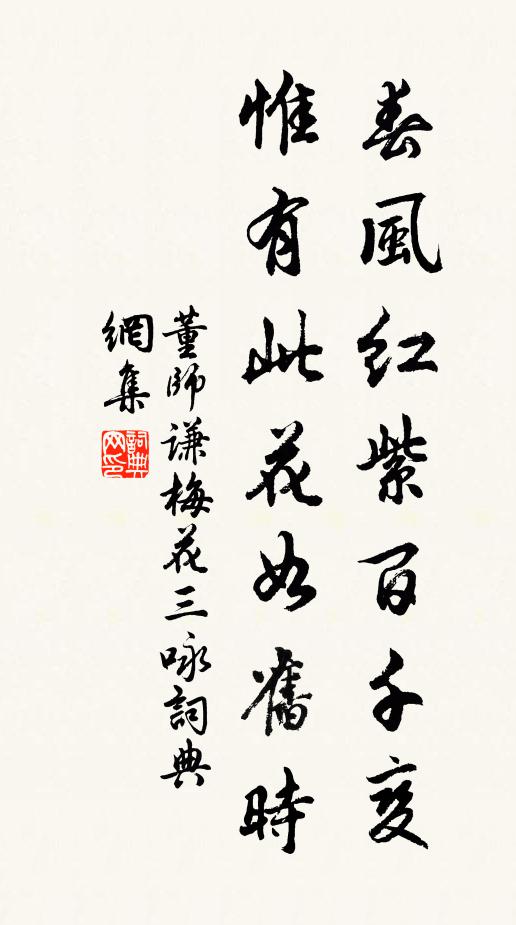 春風紅紫百千變
惟有此花如舊時
董師謙梅花三咏詞典
網集
詞典網印